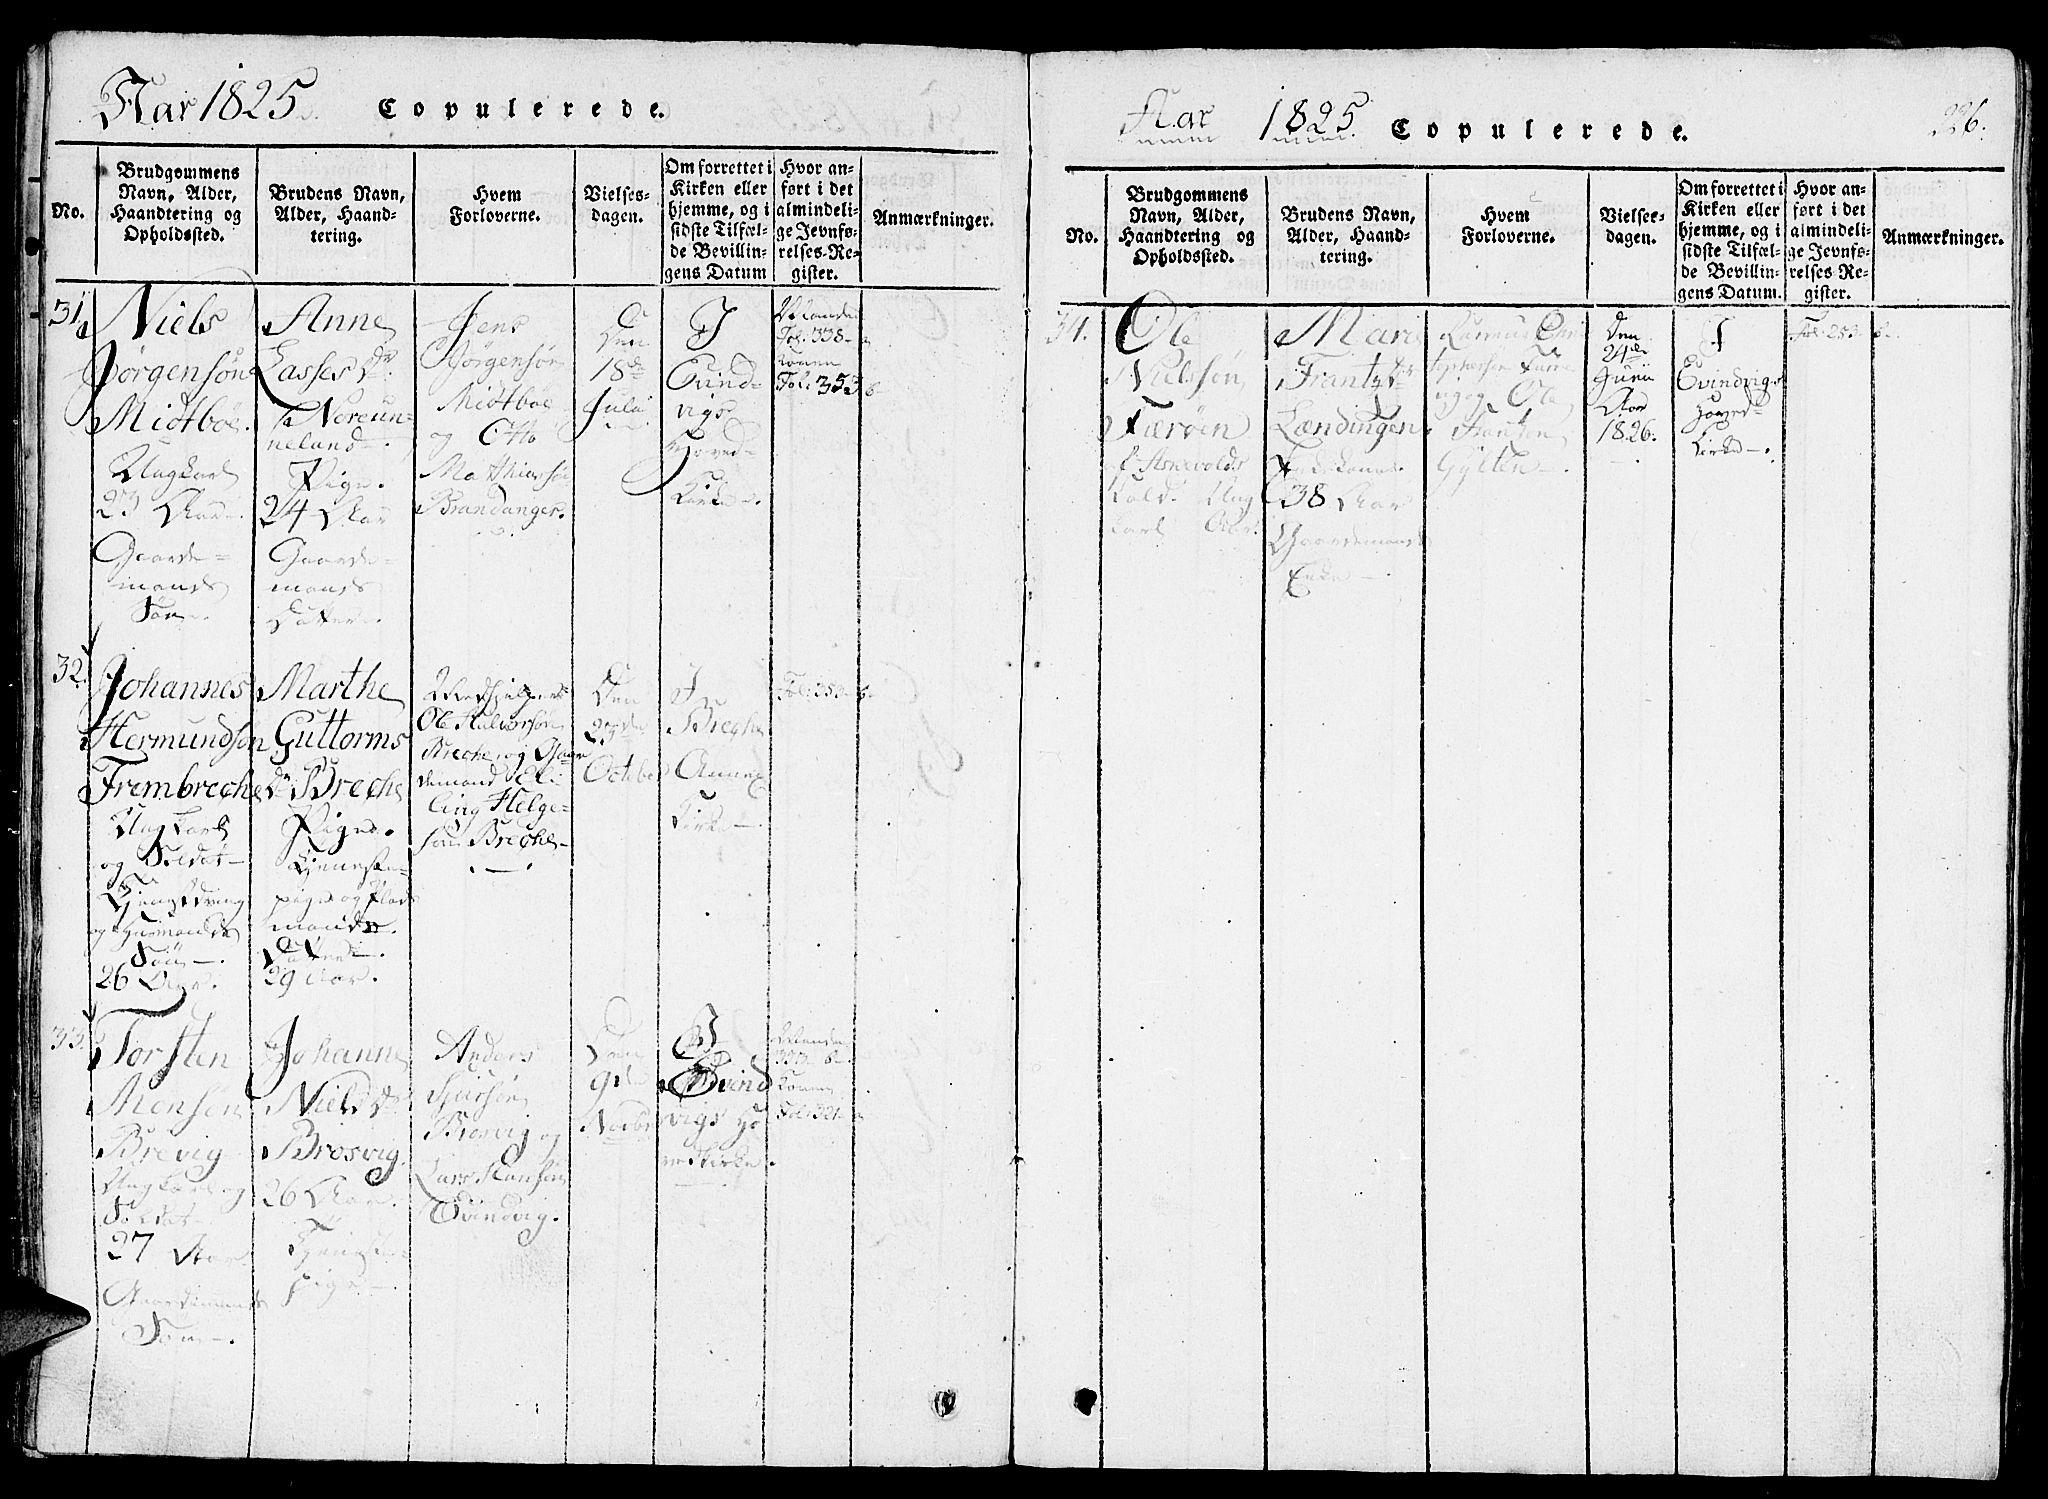 Aar 1825. Copulerede.
No.
Brudgommens
Navn, Alder,
Haandtering og
Opholdssted.
Brudens Navn,
Alder, Haand-
tering.
Hvem
Forloverne.
Vielses-
dagen.
Om forrettet i
Kirken eller
hjemme, og i
sidste Tilfæl-
de Bevillin-
gens Datum
Hvor an-
ført i det
almindeli-
ge Jevnfø-
relses-Re-
gister.
Anmærkninger.
31.
Niels
Jörgensön
Midtböe.
Ungkarl
23 Aar.
Gaarde-
mands
Sön.
Anne
Lasses Dr.
Noreun-
neland.
Pige.
24 Aar
Gaarde-
mands
Datter.
Jens
Jörgensön
Midtböe
og Otto
Mathiasön
Brandanger.
Den
18de
Julii
I
Evind-
vigs
Hoved-
Kirke.
Manden
Fol. 338
Konen
Fol. 353
32.
Johannes
Hermundsön
Frembreche
Ungkarl
og Soldat
og Husmands
Sön.
26 Aar.
Marthe
Guttorms
Dr. Breche
Pige.
Tjeneste-
pige og Plads
mands
Datter.
29 Aar.
Medhjelper
Ole Halvorsön
Breche og Gaar
demand El-
ling Helge-
sön Breche
Den
October
In
Breche
Annex
Kirke.
Fol. 353
33.
Torsten
Monsön
Brevig
Ungkarl og
Soldat
27 Aar
Gaardmands
Sön.
Johanne
Niels Dr.
Brosvig
26 Aar.
Tjeneste-
pige.
Anders
Sjursön
Brosvig og
Lars Hansön
Evindvig.
Den
9de
Novbr
I
Evind
vigs Ho
vedkirke.
Manden
353
Konen
Fol. 321
Aar 1825. Copulerede. 226.
No.
Brudgommens
Navn, Alder,
Haandtering og
Opholdssted.
Brudens Navn,
Alder, Haand-
tering.
Hvem
Forloverne.
Vielses-
dagen.
Om forrettet i
Kirken eller
hjemme, og i
sidste Tilfæl-
de Bevillin-
gens Datum.
Hvor an-
ført i det
almindeli-
ge Jevnfø-
relses-Re-
gister.
Anmærkninger.
34.
Ole
Nielsön
Færöen
Ung
karl
Mari
Frantz Dr.
Lændingen
38 Aar
Gaardemands
Enke.
Rasmus
og Ole
Hansen
Gylten.
Den
24de
Junii
Aar
1826.
I
Evindvigs
Hoved-
Kirke.
Fol. 253